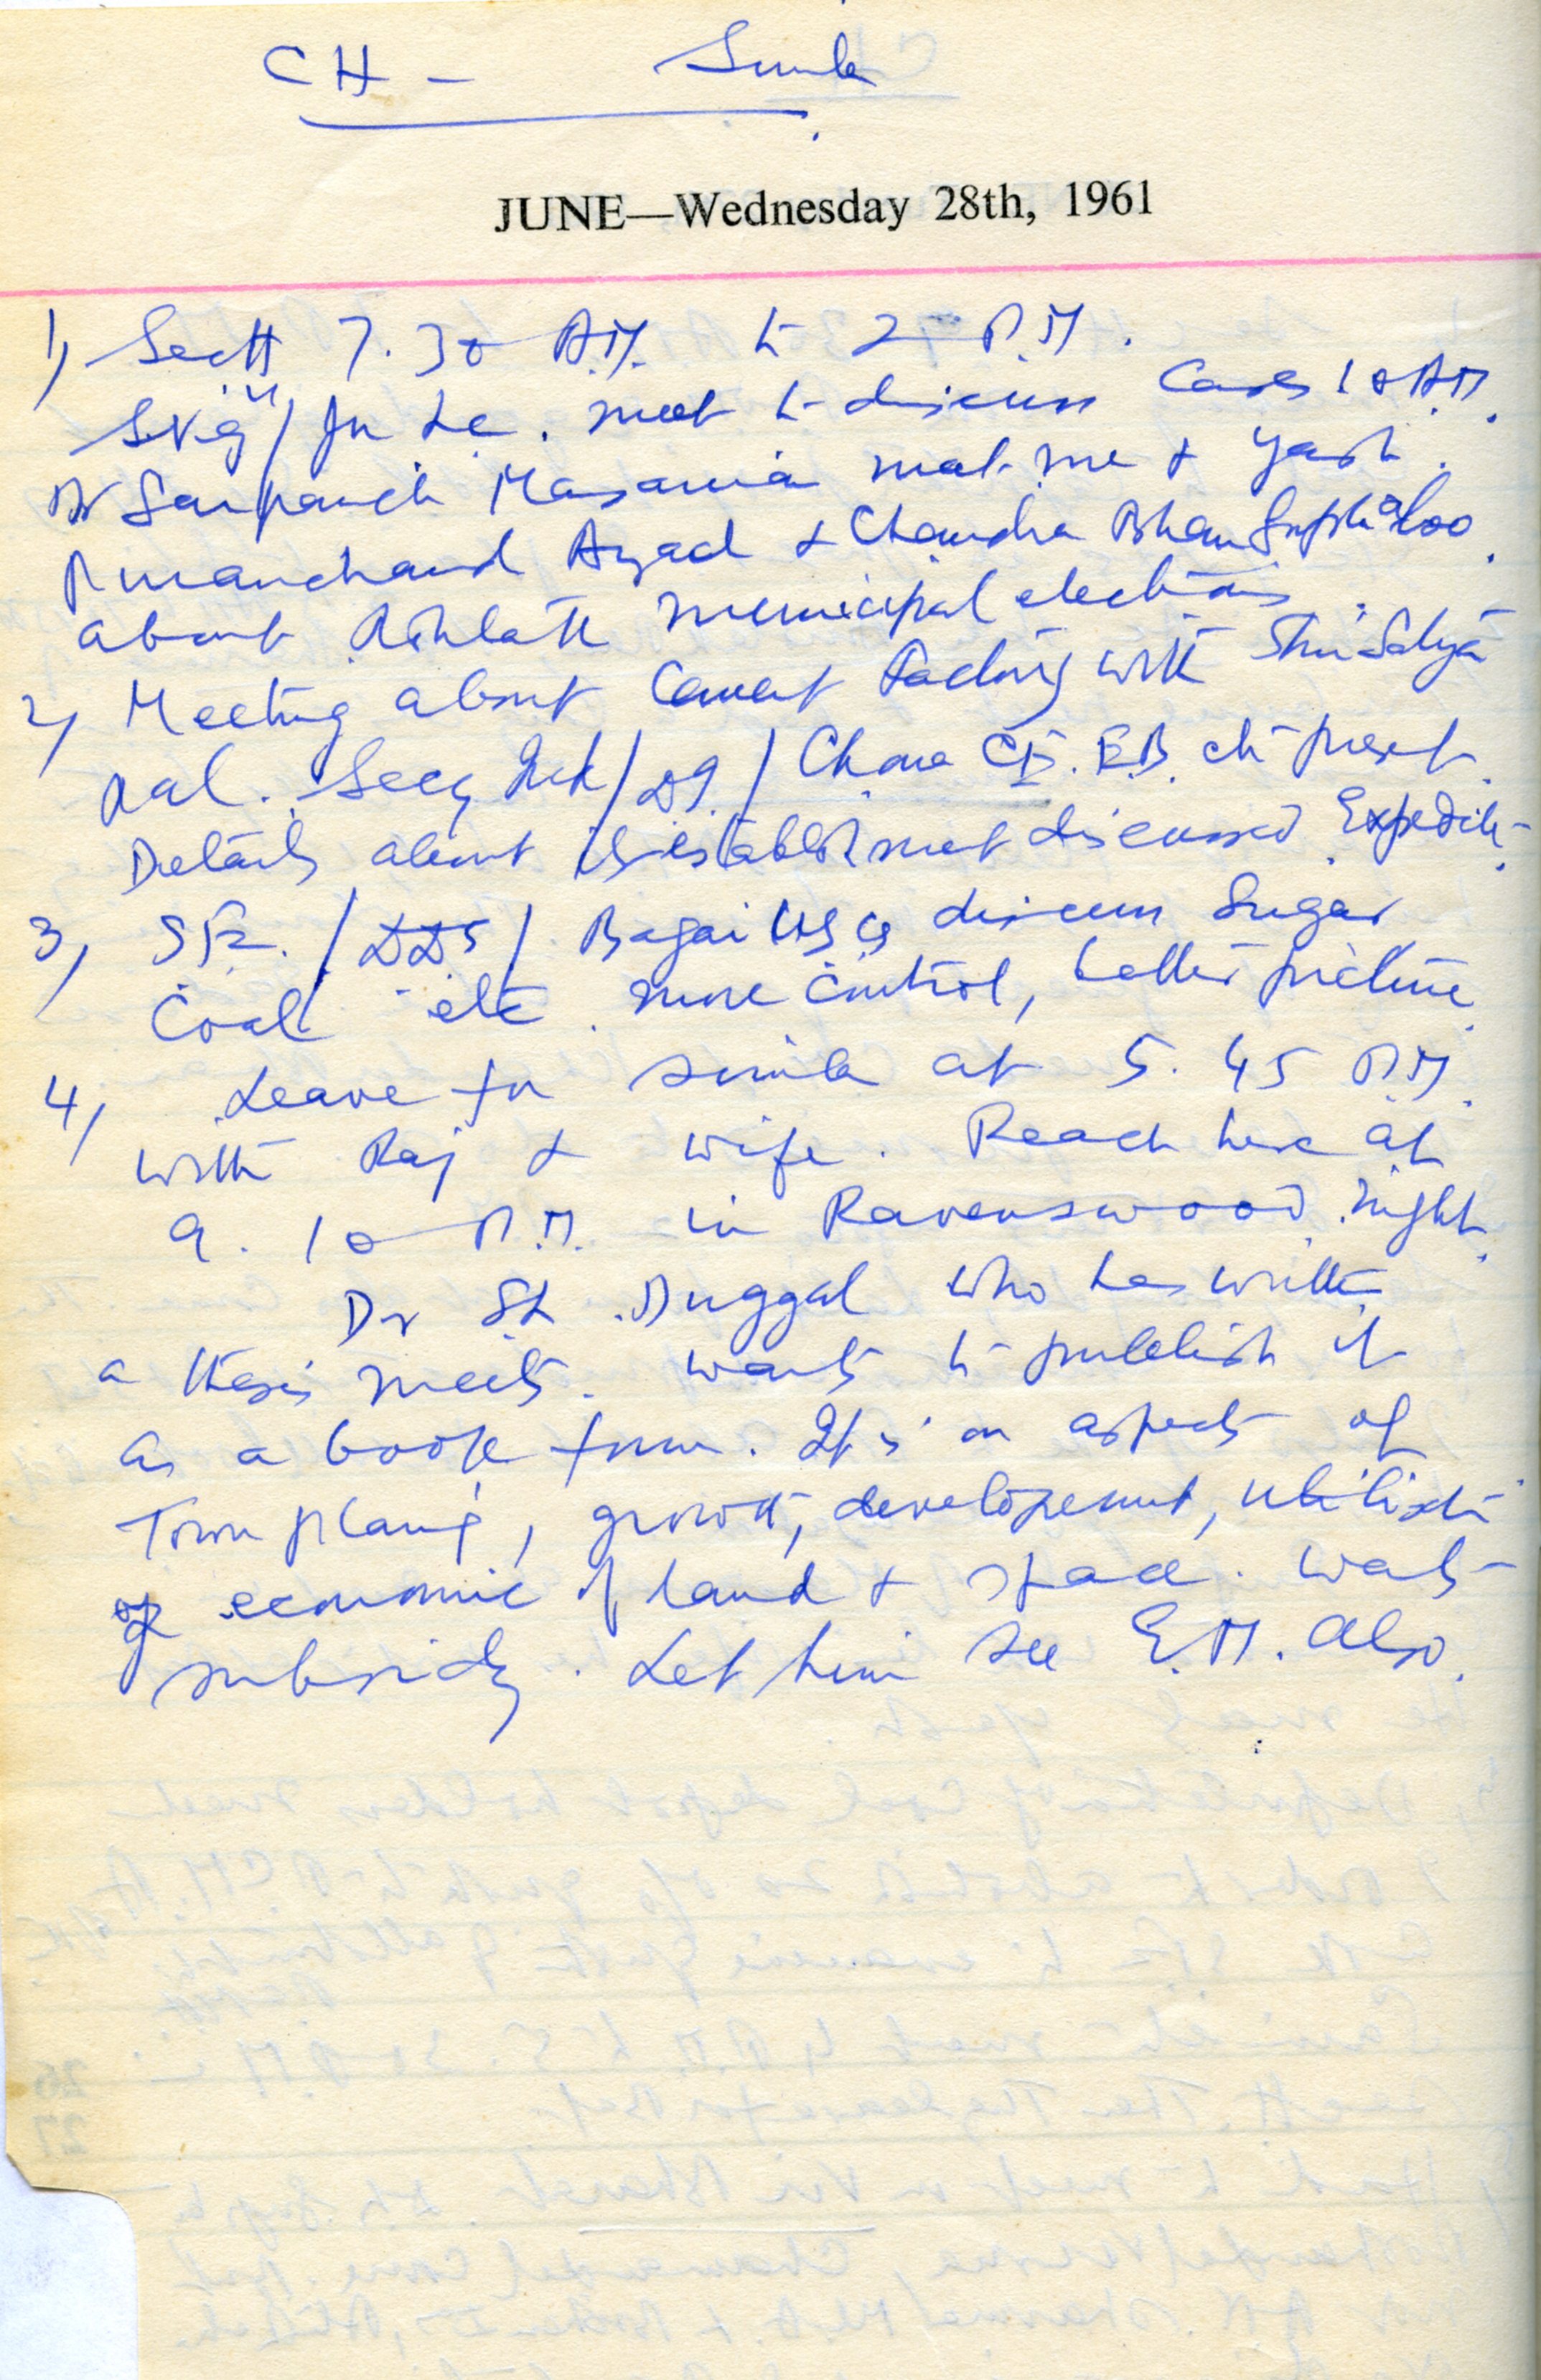 CH - Simla
JUNE—Wednesday 28th, 1961
1) Sectt 7.30 A.M. to 2 P.M.
meet to discuss Cases 10 A.M.
Sarpanch met me & Yash.
Azad & Chandra Bhan Gupta also
about Rohtak municipal elections.
2) Meeting about Cement Factory with Shri Satya
Pal. Secy Ind / DI / CE. E.B. etc present.
Details about its establishment discussed. Expedite.
3) SFS. / DDS / Bagai USCS discuss Sugar
Coal etc. more control, better picture.
4) Leave for Simla at 5.45 P.M.
with Raj & wife. Reach here at
9.10 P.M. in Ravenswood. Night.
Dr SL Duggal who has written
a thesis meets. Wants to publish it
as a book form. It is on aspects of
Town planing, growth, developement, utilisation
of economic of land & space. Wants
subsidy. Let him see E.M. also.